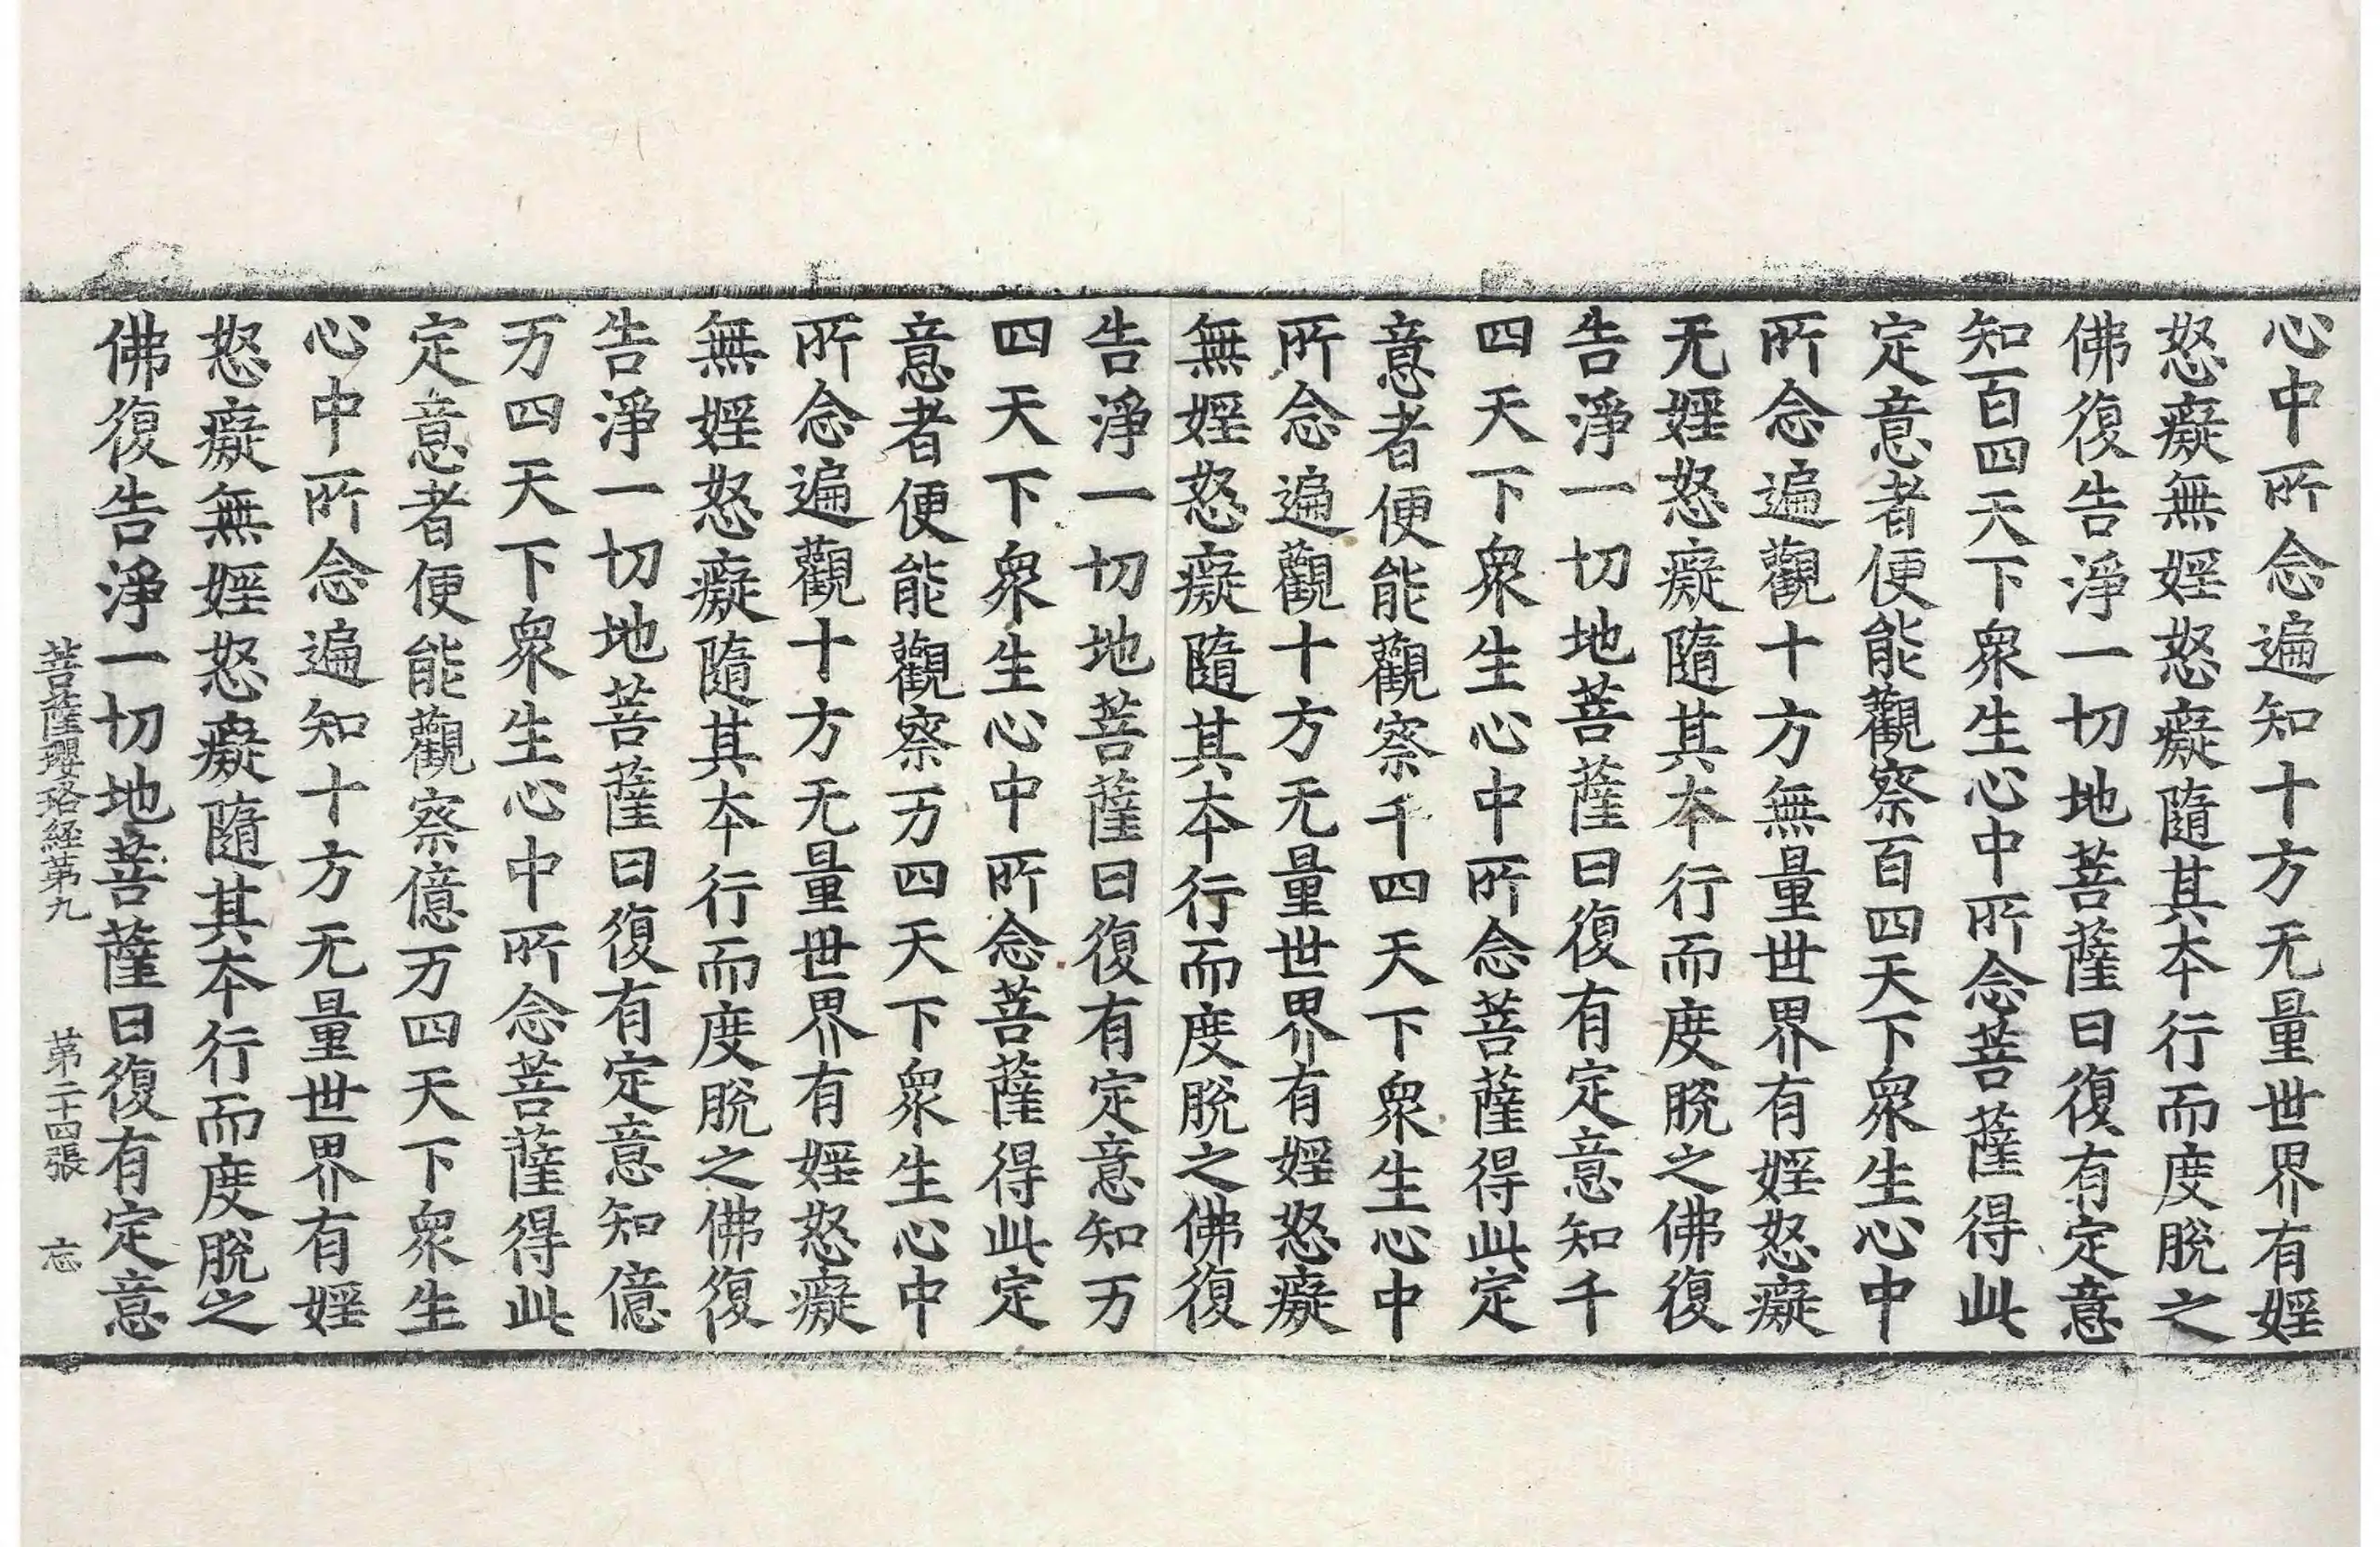 心中所念遍知十方无量世界有婬
怒癡無婬怒癡隨其本行而度脫之
佛復告淨一切地菩薩曰復有定意
知百四天下衆生心中所念菩薩得此
定意者便能觀察百四天下衆生心中
所念遍觀十方無量世界有婬怒癡
无婬怒癡隨其本行而度脫之佛復
告淨一切地菩薩曰復有定意知千
四天下衆生心中所念菩薩得此定
意者便能觀察千四天下衆生心中
所念遍觀十方无量世界有婬怒癡
無婬怒癡隨其本行而度脫之佛復
告淨一切地菩薩曰復有定意知万
四天下衆生心中所念菩薩得此定
意者便能觀察万四天下衆生心中
所念遍觀十方无量世界有婬怒癡
無婬怒癡隨其本行而度脫之佛復
告淨一切地菩薩曰復有定意知億
万四天下衆生心中所念菩薩得此
定意者便能觀察億万四天下衆生
心中所念遍知十方无量世界有婬
怒癡無婬怒癡隨其本行而度脫之
佛復告淨一切地菩薩曰復有定意
菩薩瓔珞経苐九 苐二十四張 忘